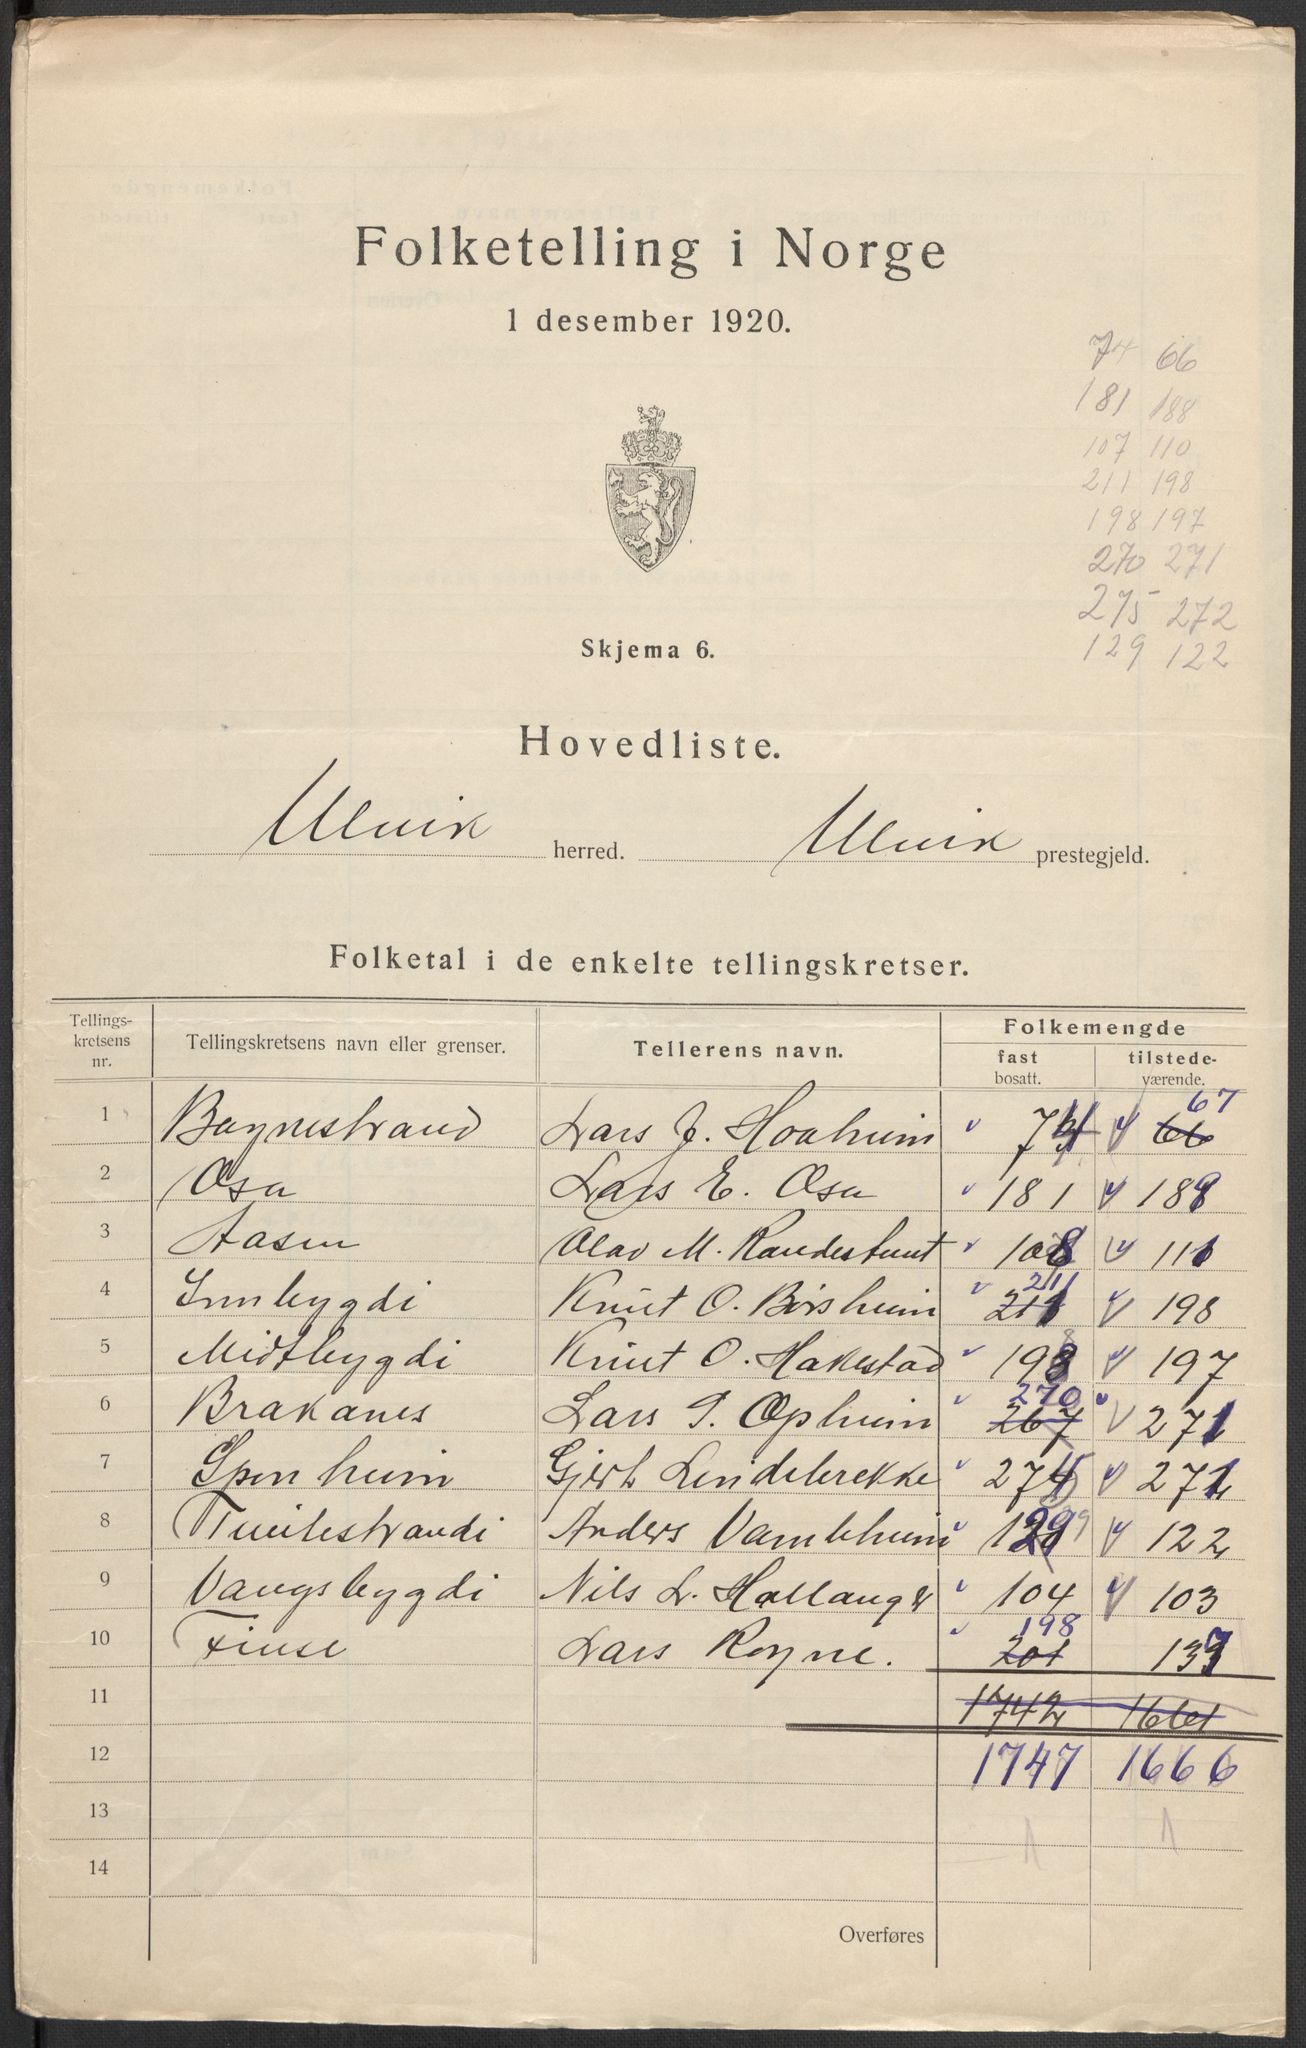 Folketelling i Norge
1 desember 1920.
74 66
181 188
107 110
211 198
198 197
270 271
275 272
129 122
Skjema 6.
Hovedliste.
Ulvik herred. Ulvik prestegjeld.
Folketal i de enkelte tellingskretser.
Tellings-kretsens nr. Tellingskretsens navn eller grenser. Tellerens navn. Folkemengde
fast bosatt. tilstede-værende.
67
1 Lars J. Hoaheim 74 66
2 Osa Lars E. Osa 181 188
3 Aasen Olav M. 108 111
211
4 Innbygdi Knut O. 198
5 Midtbygdi Knut O. Hakestad 198 197
270
6 Brakanes Lars Opheim 267 271
7 Spenheim Gjert Lindebrekke 27
8 Anders 129 122
9 Vangsbygdi Nils L. Hallanger 104 103
198
10 Finse Lars Royne. 201 137
11 1742 1661
12 1747 1666
13
14
Overføres